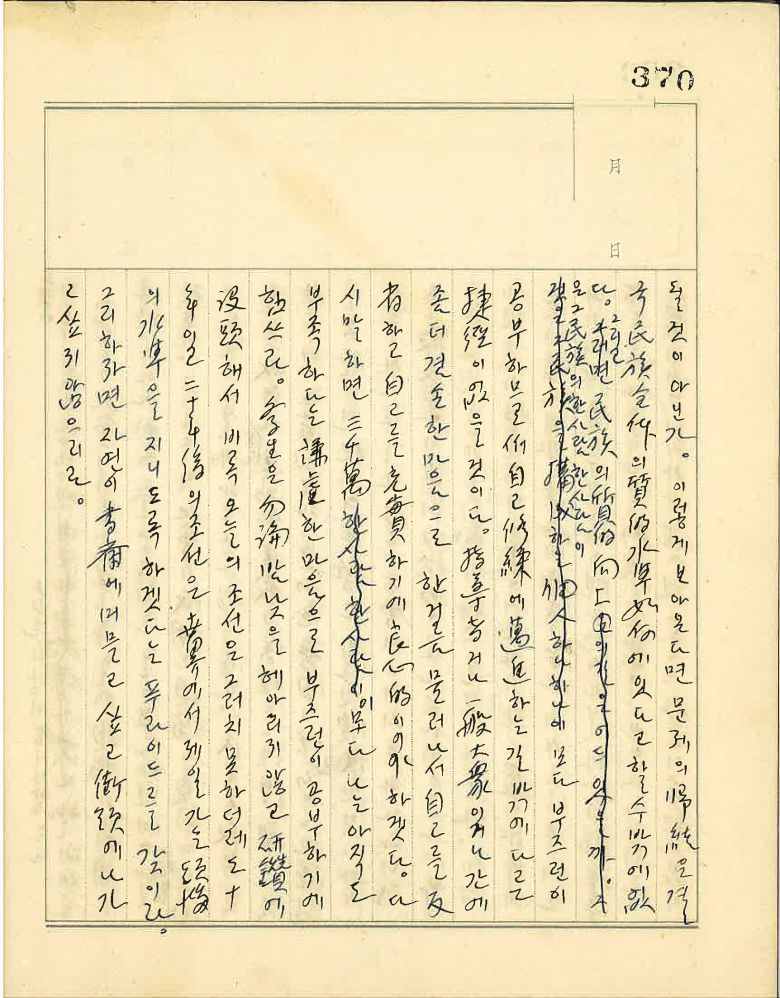 370
月
日
될 것이 아닌가。이렇게 보아온다면 문제의 歸結은 결
국 民族全体의 質的 水準 如何에 잇다고 할 수 밧게 없
다。그러면 民族의 質的 向上
은 그 民族의 한사람 한사람이
民族을 構成하는 個人 하나하나에 모다 부즈런이
공부하므로써 自己修練에 邁進하는 길 밧게 다른
捷徑이 없을 것이다。指導者거나 一般大衆이거나 간에
좀더 겸손한 마음으로 한거름 물러나서 自己를 反
省하고 自己를 充實하기에 良心的이어야 하겟다。다
시 말하면 三千萬 한사람 한사람이 모다 나는 아직도
부족하다는 謙虛한 마음으로 부즈런이 공부하기에
힘쓰라。學生은 勿論 밤낮을 헤아리지 않고 硏鑽에
沒頭해서 비록 오늘의 조선은 그러치 못하더래도 十
年 일 二十年 後의 조선은 世界에서 제일 가는 頭腦
의 水準을 지니도록 하겟다는 푸라이드를 갖이라。
그리하라면 자연이 書齋에 머물고 싶고 街頭에 나가
고 싶지 않으리라。